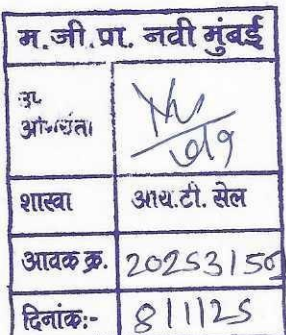 म.जी.प्रा. नवी मुंबई
उप
शाखा आय.टी. सेल
आवक क्र. 20253150
दिनांक:- 8/1/25